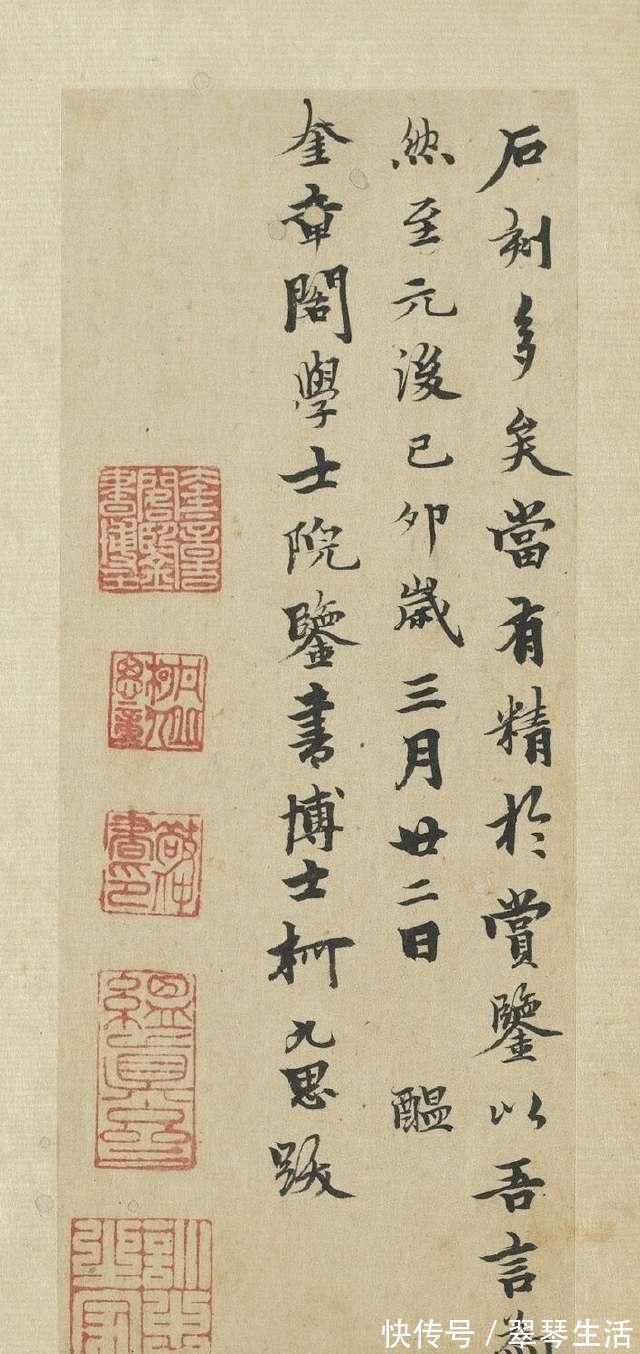 石刻多矣當有精於賞鑒以吾言
然至元後己卯歲三月廿二日　醖
奎章閣學士院鑒書博士柯九思跋
奎章閣鑒書博士
丹丘柯九思章
敬仲書印
縕真齋
訓忠之家
快传号／翠琴生活